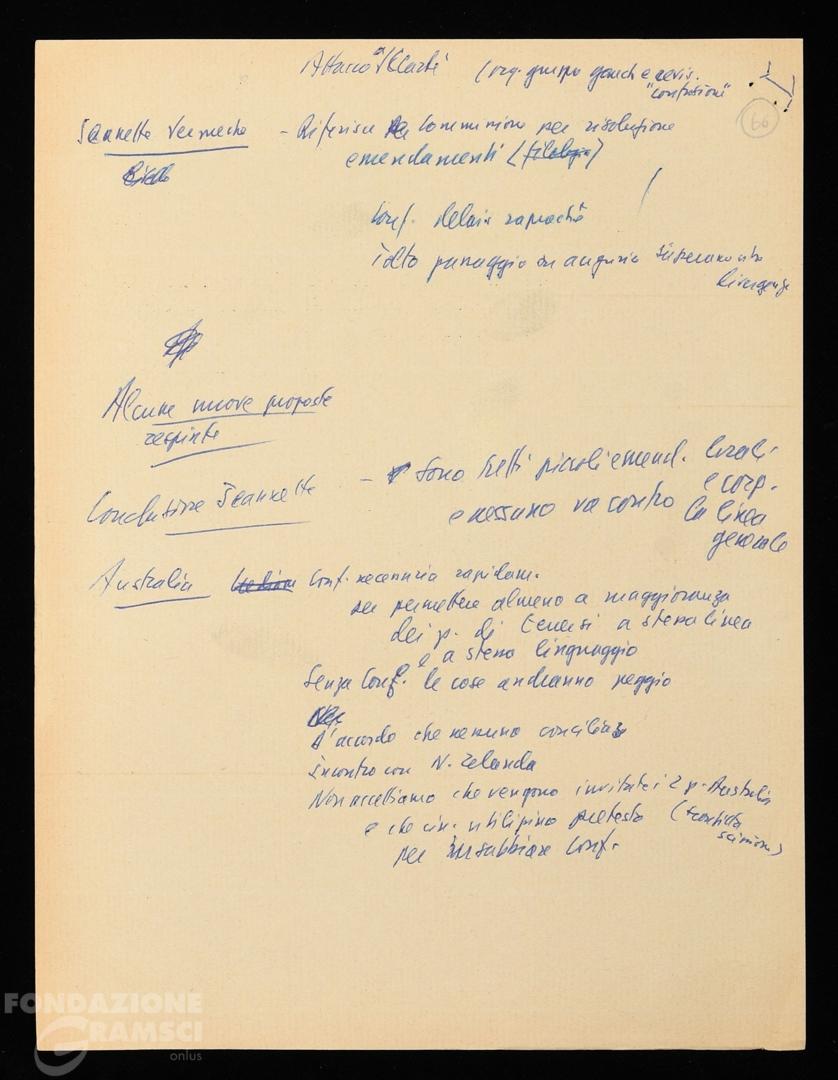 Attacco a "Clarté" (org. gruppo gauche e revis.
"confusioni"
66
Jeannette Vermeche - Riferisce Commissione per risoluzione
emendamenti (filologia)
Conf.
Tolto passaggio su augurio
divergenze
Alcune nuove proposte
respinte
Conclusione Jeannette - Sono tutti piccoli emend. locali
e corp.
e nessuno va contro la linea
generale
Australia Conf. necessaria rapidam.
per permettere almeno a maggioranza
dei p. di a stessa linea
e a stesso linguaggio
Senza Conf. le cose andranno peggio
D'accordo che nessuno
Incontro con N. Zelanda
Non accettiamo che vengono invitati i 2 p. Australia
e che cin. utilizzino pretesto
per insabbiare Conf.
FONDAZIONE
GRAMSCI
onlus